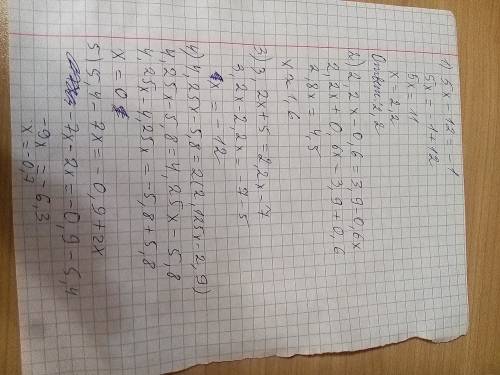 1) 5x - 12 = -1
5x = -1+12
5x = 11
x = 2,2
Ответ: 2,2
2) 2,2x - 0,6 = 3,9 - 0,6x
2,2x + 0,6x = 3,9 + 0,6
2,8x = 4,5
x ≈ 1,6
3) 3,2x + 5 = 2,2x - 7
3,2x - 2,2x = -7 - 5
x = -12
4) 4,25x - 5,8 = 2(2,125x - 2,9)
4,25x - 5,8 = 4,25x - 5,8
4,25x - 4,25x = -5,8 + 5,8
x = 0
5) 5,4 - 7x = -0,9 + 2x
-7x - 2x = -0,9 - 5,4
-9x = -6,3
x = 0,7